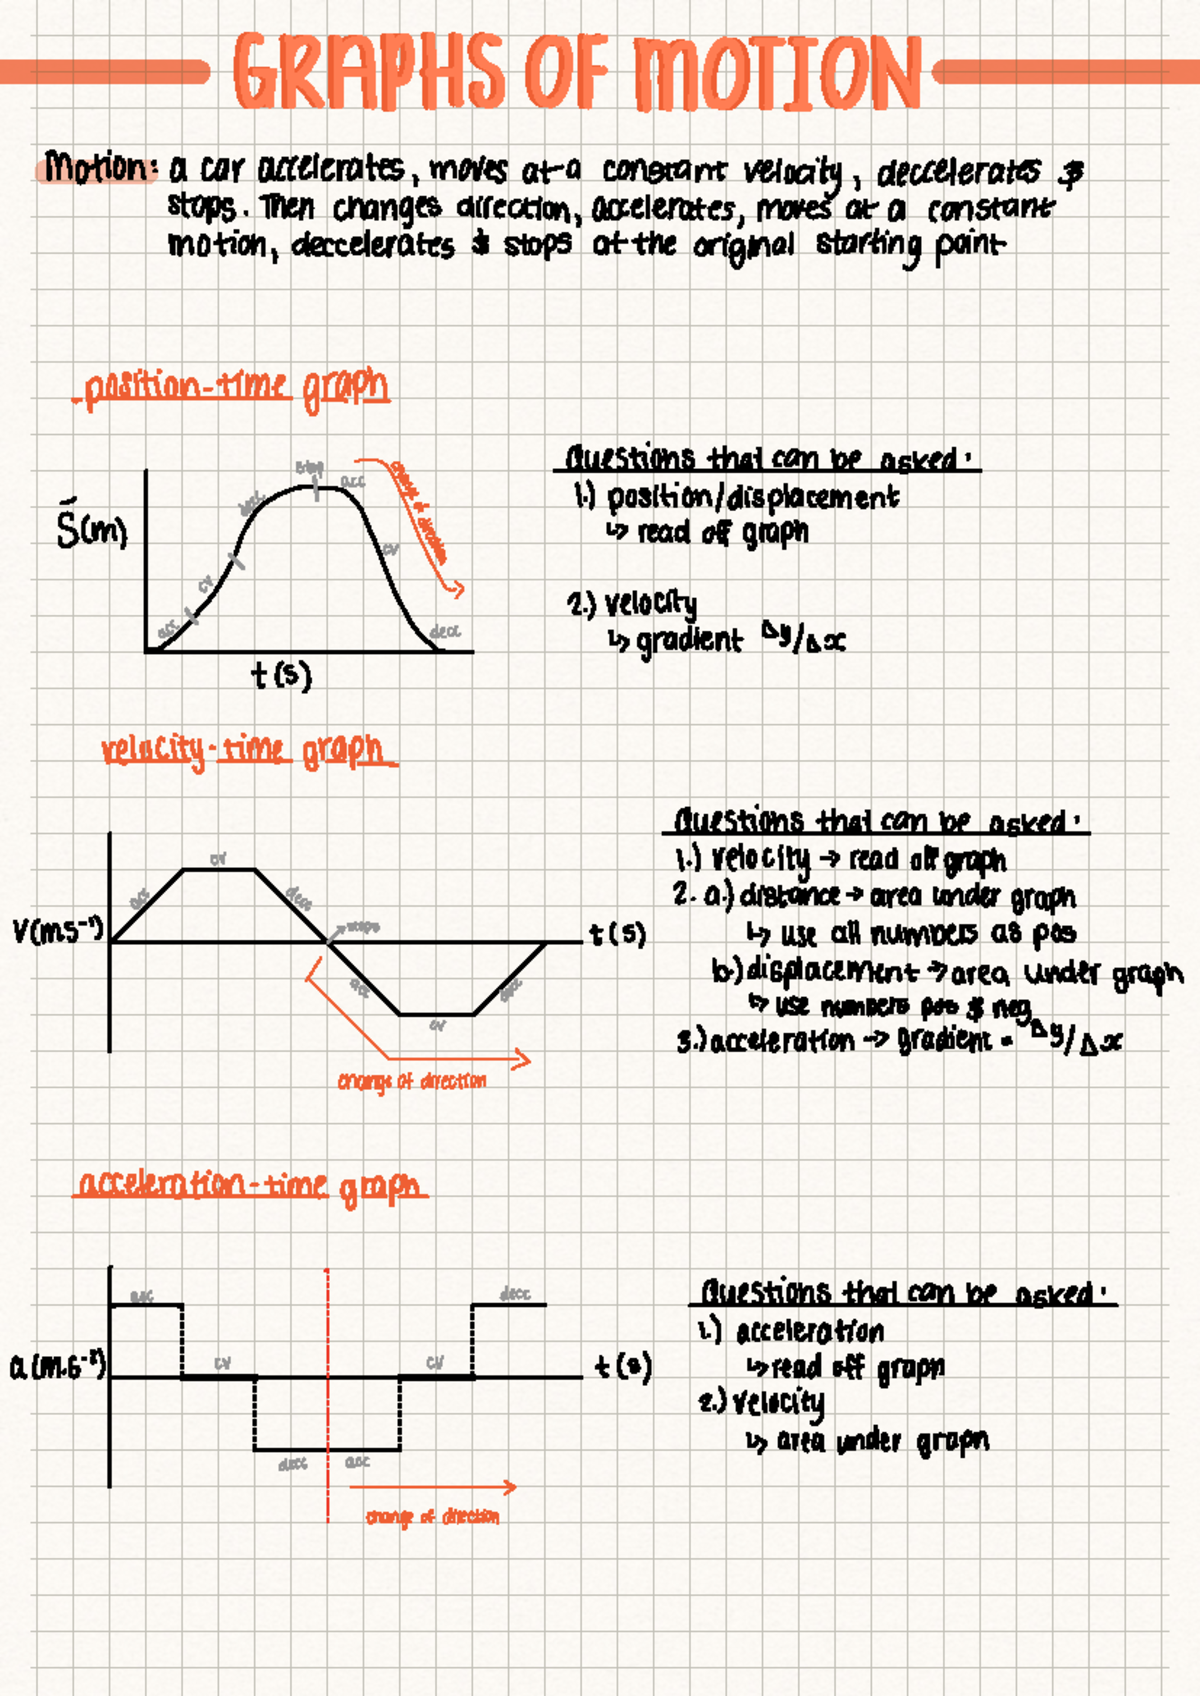 GRAPHS OF MOTION
Motion: a car accelerates, moves at a constant velocity, deccelerates &
stops. Then changes direction, accelerates, moves at a constant
motion, deccelerates & stops at the original starting point
position-time graph
Questions that can be asked:
1.) position/displacement
↳ read off graph
2.) velocity
↳ gradient Δy/Δx
S⃗(m)
acc
cv
decc
stop
acc
cv
decc
change of direction
t(s)
velocity-time graph
Questions that can be asked:
1.) velocity → read off graph
2. a.) distance → area under graph
↳ use all numbers as pos
b.) displacement → area under graph
↳ use numbers pos & neg
3.) acceleration → gradient = Δy/Δx
V(ms⁻¹)
acc
cv
decc
stops
acc
cv
decc
t(s)
change of direction
acceleration-time graph
Questions that can be asked:
1.) acceleration
↳ read off graph
2.) velocity
↳ area under graph
a(m.s⁻²)
acc
cv
decc
acc
cv
decc
t(s)
change of direction